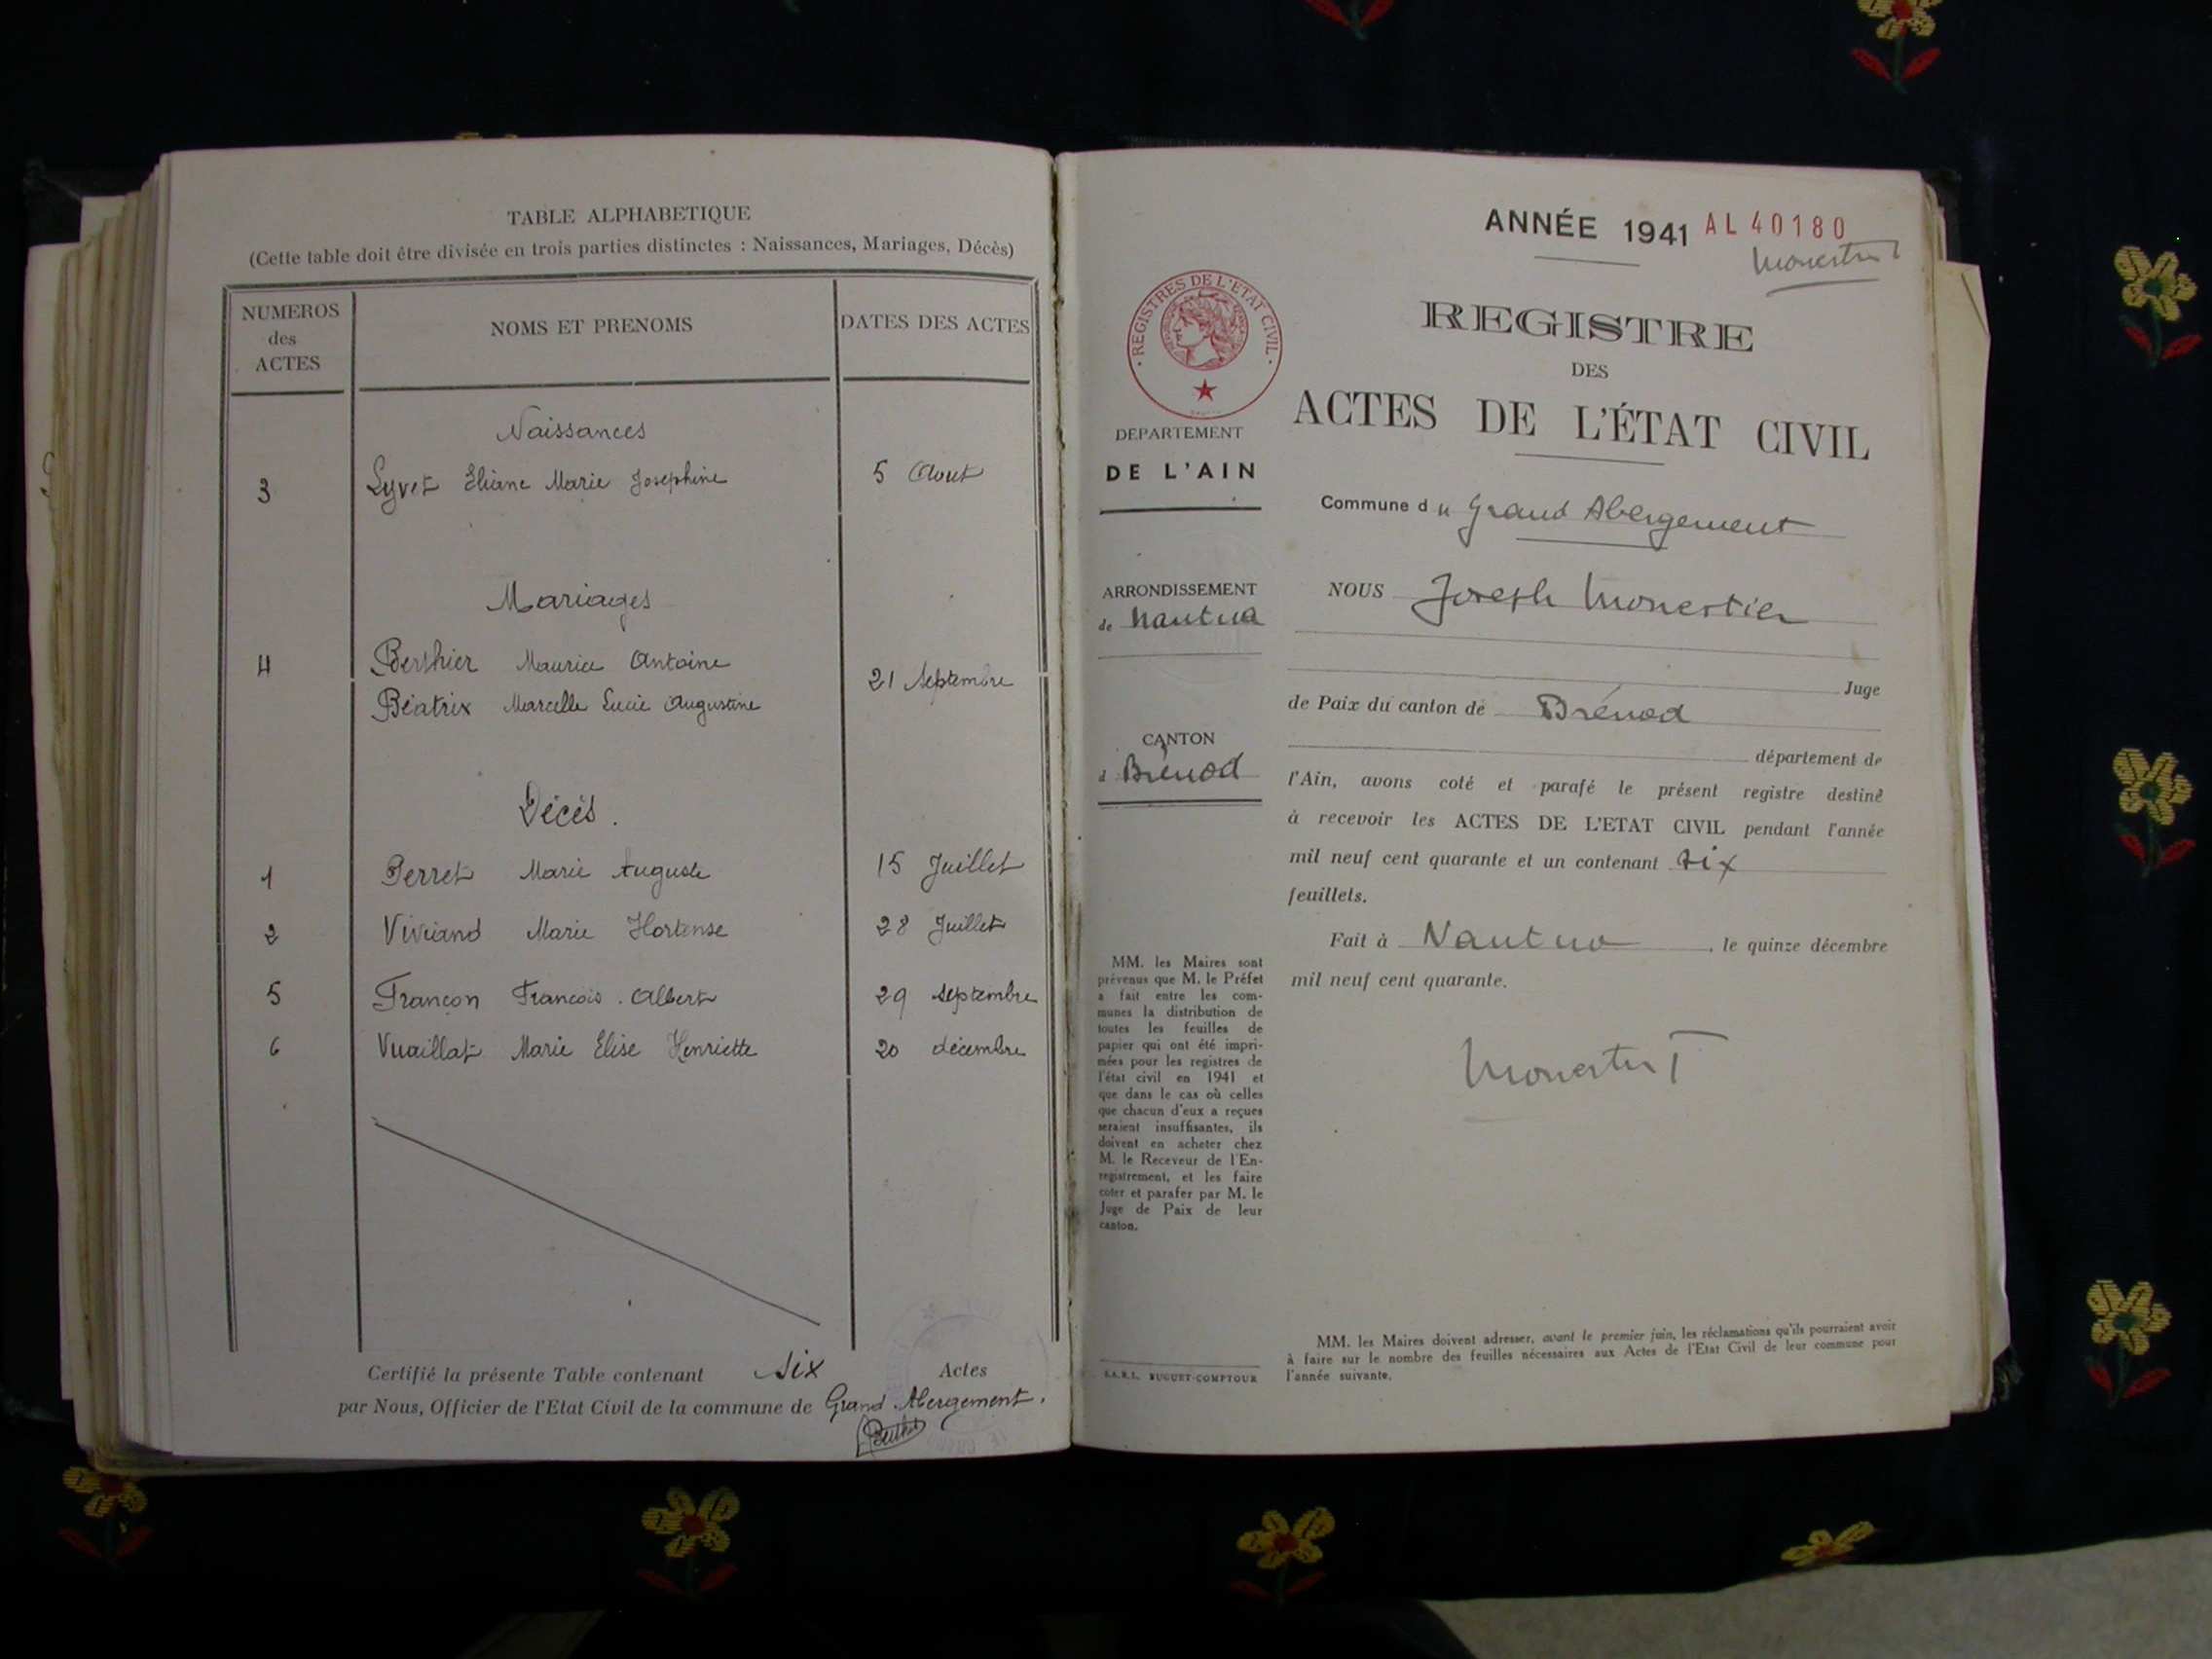 TABLE ALPHABETIQUE
(Cette table doit être divisée en trois parties distinctes : Naissances, Mariages, Décès)
NUMEROS des ACTES
NOMS ET PRENOMS
DATES DES ACTES
Naissances
3 Lyvet Eliane Marie Josephine 5 Aout
Mariages
4 Berthier Maurice Antoine
21 Septembre
Béatrix Marcelle Lucie Augustine
Décès.
1 Perret Marie Auguste 15 Juillet
2 Viviand Marie Hortense 28 Juillet
5 Françon Francois. Albert 29 Septembre
6 Vuaillat Marie Elise Henriette 20 décembre
Certifié la présente Table contenant six Actes
par Nous, Officier de l'Etat Civil de la commune de Grand Abergement.
ANNÉE 1941 AL 40180
REGISTRES DE L'ETAT CIVIL
REGISTRE
DES
ACTES DE L'ÉTAT CIVIL
DEPARTEMENT
DE L'AIN
Commune du Grand Abergement
ARRONDISSEMENT
de Nantua
CANTON
d Brénod
NOUS Joseph Monestier
Juge
de Paix du canton de Brénod
département de
l'Ain, avons coté et parafé le présent registre destiné
à recevoir les ACTES DE L'ETAT CIVIL pendant l'année
mil neuf cent quarante et un contenant six
feuillets.
Fait à Nantua, le quinze décembre
mil neuf cent quarante.
MM. les Maires sont
prévenus que M. le Préfet
a fait entre les com-
munes la distribution de
toutes les feuilles de
papier qui ont été impri-
mées pour les registres de
l'état civil en 1941 et
que dans le cas où celles
que chacun d'eux a reçues
seraient insuffisantes, ils
doivent en acheter chez
M. le Receveur de l'En-
registrement, et les faire
coter et parafer par M. le
Juge de Paix de leur
canton.
S.A.R.L. BUGUET-COMPTOUR
MM. les Maires doivent adresser, avant le premier juin, les réclamations qu'ils pourraient avoir
à faire sur le nombre des feuilles nécessaires aux Actes de l'Etat Civil de leur commune pour
l'année suivante.